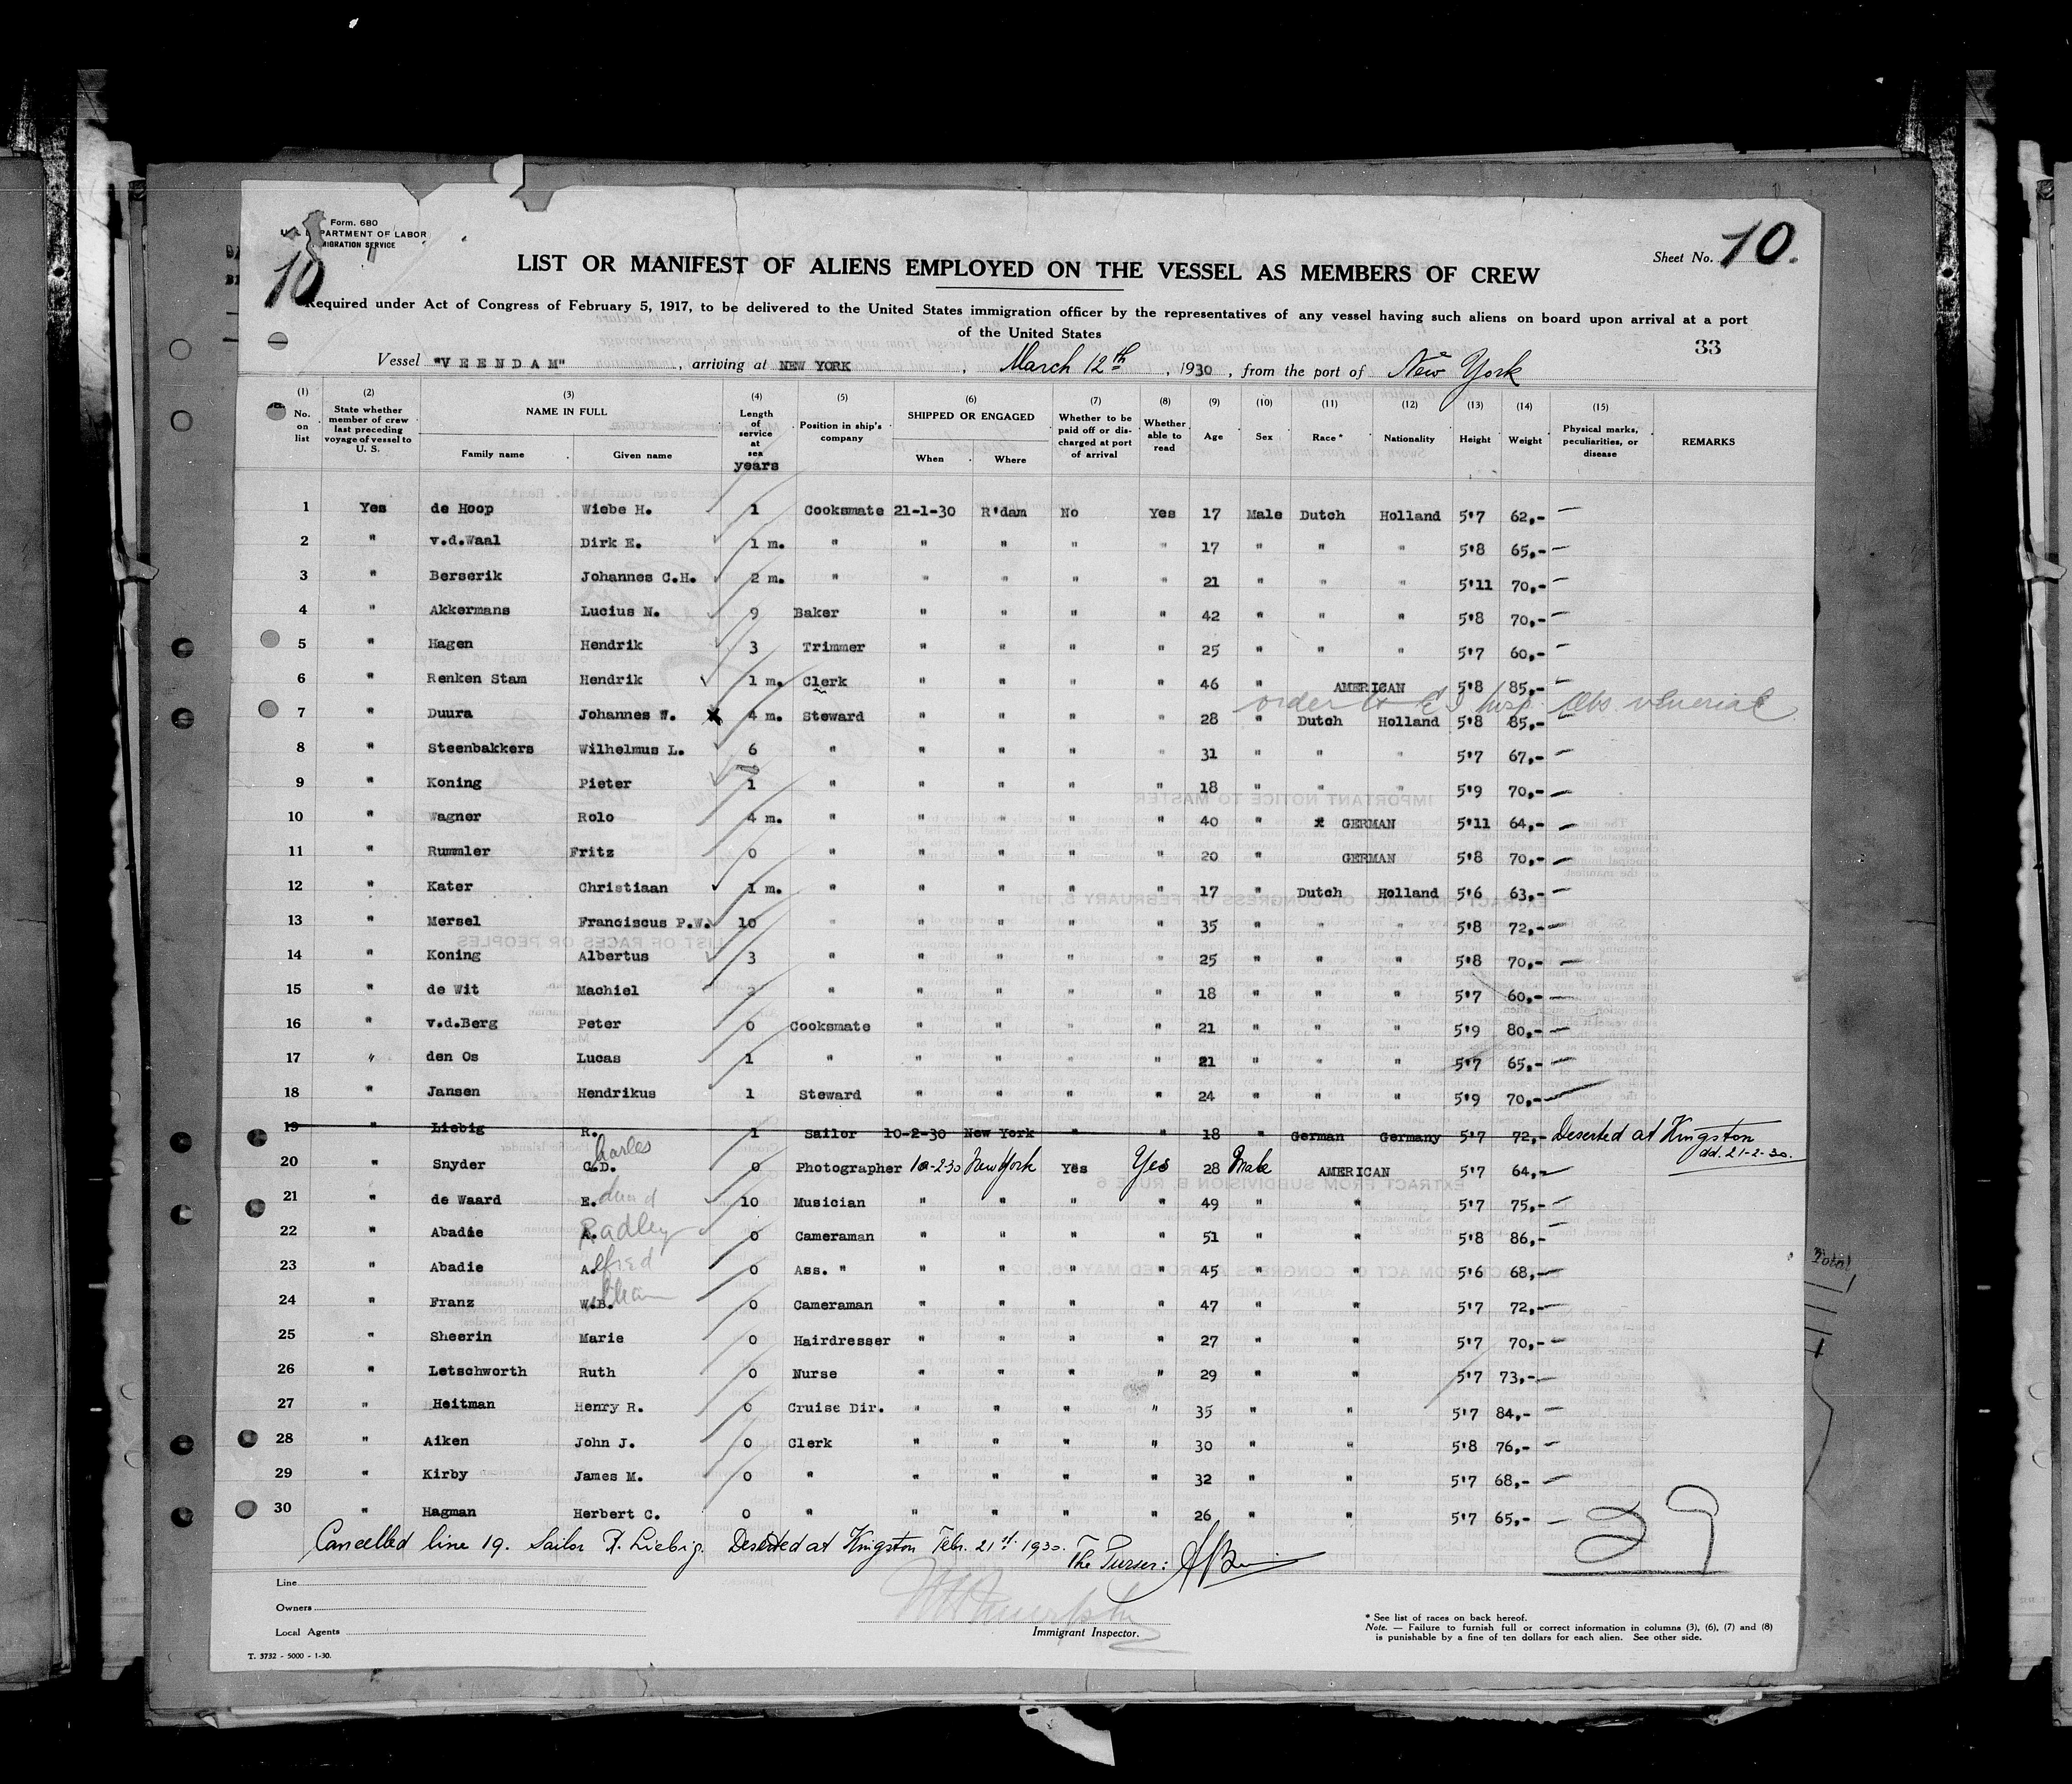 Form. 680
U.S. DEPARTMENT OF LABOR
IMMIGRATION SERVICE
10
Sheet No. 10.
LIST OR MANIFEST OF ALIENS EMPLOYED ON THE VESSEL AS MEMBERS OF CREW
Required under Act of Congress of February 5, 1917, to be delivered to the United States immigration officer by the representatives of any vessel having such aliens on board upon arrival at a port
of the United States
33
Vessel "VEENDAM", arriving at NEW YORK, March 12th, 1930, from the port of New York
(1) No. on list (2) State whether member of crew last preceding voyage of vessel to U. S. (3) NAME IN FULL Family name Given name (4) Length of service at sea years (5) Position in ship's company (6) SHIPPED OR ENGAGED When Where (7) Whether to be paid off or discharged at port of arrival (8) Whether able to read (9) Age (10) Sex (11) Race* (12) Nationality (13) Height (14) Weight (15) Physical marks, peculiarities, or disease REMARKS
1 Yes de Hoop Wiebe H. 1 Cooksmate 21-1-30 R'dam No Yes 17 Male Dutch Holland 5'7 62,- —
2 " v.d.Waal Dirk E. 1 m. " " " " " 17 " " " 5'8 65,- —
3 " Berserik Johannes C.H. 2 m. " " " " " 21 " " " 5'11 70,- —
4 " Akkermans Lucius N. 9 Baker " " " " 42 " " " 5'8 70,- —
5 " Hagen Hendrik 3 Trimmer " " " " 25 " " " 5'7 60,- —
6 " Renken Stam Hendrik 1 m. Clerk " " " " 46 " AMERICAN 5'8 85,- —
order to E I hosp. obs. venerial
7 " Duura Johannes W. 4 m. Steward " " " " 28 " Dutch Holland 5'8 85,- —
8 " Steenbakkers Wilhelmus L. 6 " " " " " 31 " " " 5'7 67,- —
9 " Koning Pieter 1 " " " " " 18 " " " 5'9 70,- —
10 " Wagner Rolo 4 m. " " " " " 40 " x GERMAN 5'11 64,- —
11 " Rummler Fritz 0 " " " " " 20 " GERMAN 5'8 70,- —
12 " Kater Christiaan 1 m. " " " " " 17 " Dutch Holland 5'6 63,- —
13 " Mersel Franciscus P.W. 10 " " " " " 35 " " " 5'8 72,- —
14 " Koning Albertus 3 " " " " " 25 " " " 5'8 70,- —
15 " de Wit Machiel 2 " " " " " 18 " " " 5'7 60,- —
16 " v.d.Berg Peter 0 Cooksmate " " " " 21 " " " 5'9 80,- —
17 " den Os Lucas 1 " " " " " 21 " " " 5'7 65,- —
18 " Jansen Hendrikus 1 Steward " " " " 24 " " " 5'9 70,- —
19 " Liebig R. 1 Sailor 10-2-30 New York " " 18 " German Germany 5'7 72,- Deserted at Kingston
dd. 21-2-30.
20 " Snyder C.D. Charles 0 Photographer 10-2-30 New York Yes Yes 28 Male AMERICAN 5'7 64,- —
21 " de Waard E. 10 Musician " " " " 49 " " 5'7 75,- —
22 " Abadie A. Radley 0 Cameraman " " " " 51 " " 5'8 86,-
23 " Abadie Alfred 0 Ass. " " " " " 45 " " 5'6 68,- —
24 " Franz W.B. 0 Cameraman " " " " 47 " " 5'7 72,- —
25 " Sheerin Marie 0 Hairdresser " " " " 27 " " 5'7 70,- —
26 " Letschworth Ruth 0 Nurse " " " " 29 " " 5'7 73,- —
27 " Heitman Henry R. 0 Cruise Dir. " " " " 35 " " 5'7 84,- —
28 " Aiken John J. 0 Clerk " " " " 30 " " 5'8 76,- —
29 " Kirby James M. 0 " " " " " 32 " " 5'7 68,- —
30 " Hagman Herbert C. 0 " " " " " 26 " " 5'7 65,- —
29
Cancelled line 19. Sailor R. Liebig. Deserted at Kingston Febr. 21st 1930. The Purser:
Line
Owners
Local Agents
Immigrant Inspector.
* See list of races on back hereof.
Note. — Failure to furnish full or correct information in columns (3), (6), (7) and (8)
is punishable by a fine of ten dollars for each alien. See other side.
T. 3732 - 5000 - 1-30.
Total